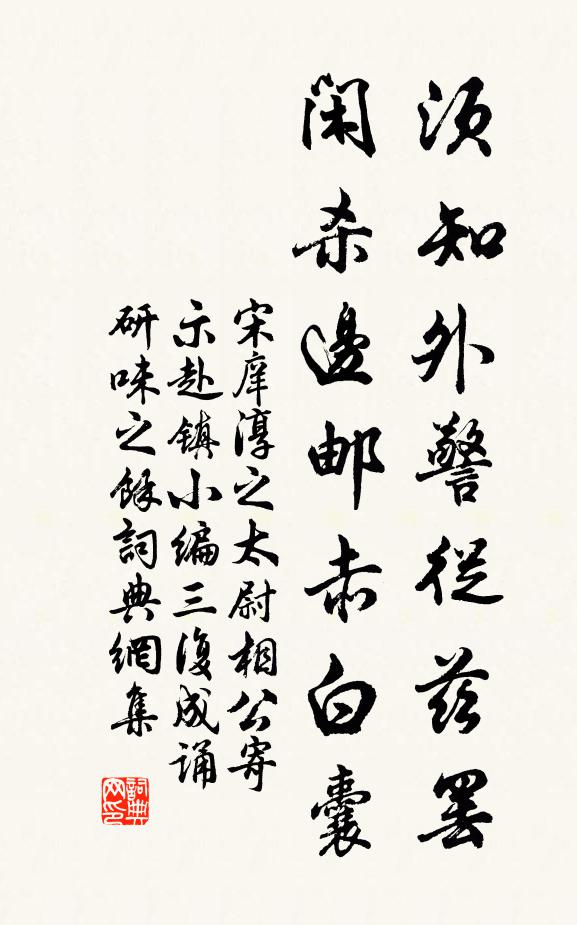 須知外警從茲罷
閑杀邊邮赤白囊
宋庠淳之太尉相公寄
示赴鎮小編三復成誦
研味之餘詞典網集
詞典网印